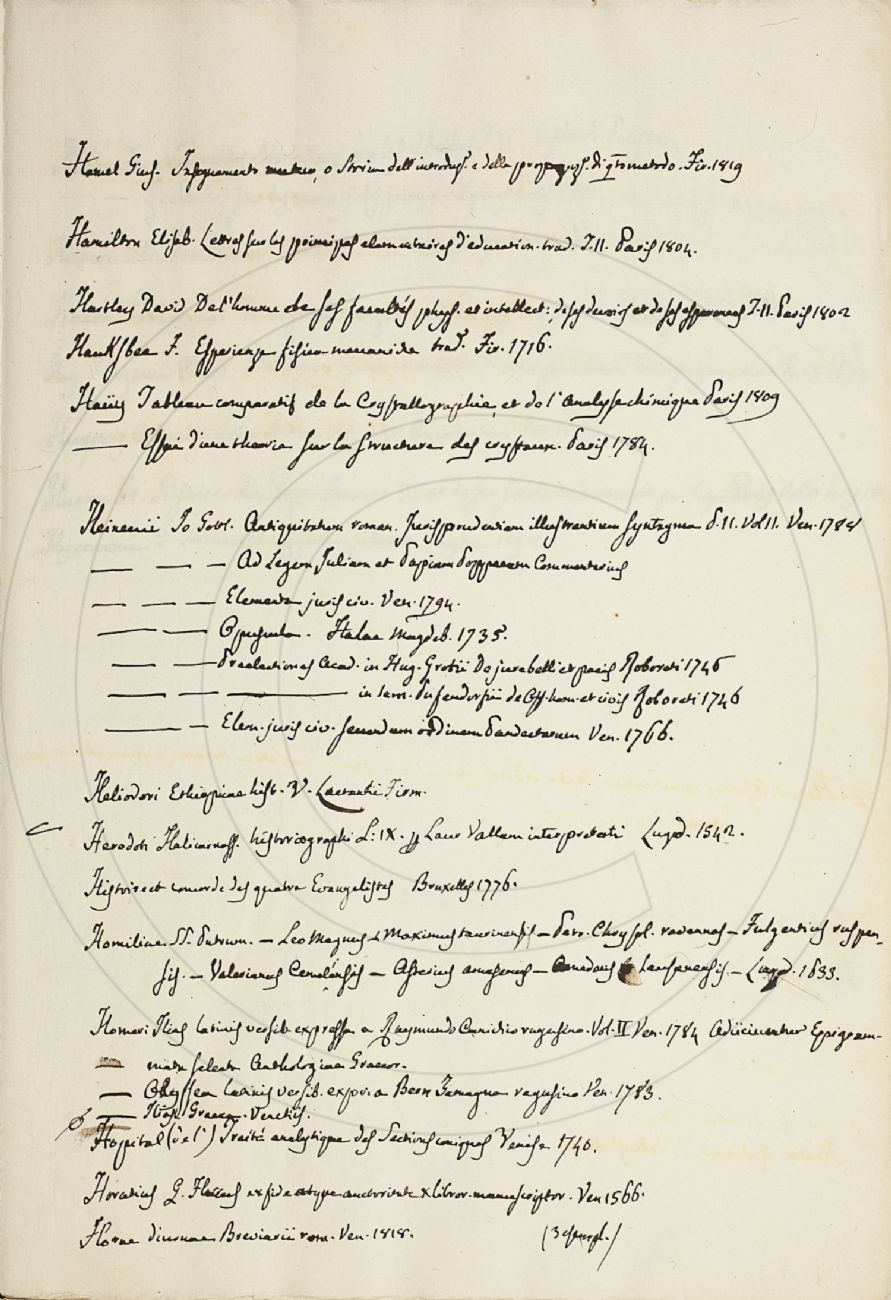 Hamel Gius. Insegnamento mutuo, o Storia dell'introduz. e della propagaz. di q.to metodo. Fir. 1819
Hamilton Elisab. Lettres sur les principes elementaires d'education. trad. T. II. Paris 1804.
Hartley David De l'homme de ses facultés phys. et intellect: de ses devoirs et de ses esperances T. II. Paris 1802
Hauksbee F. Esperienze fisico meccaniche trad. Fir. 1716.
Haüy Tableau comparatif de la Crystallographie, et de l'Analyse chimique Paris 1809
—— Essai d'une theorie sur la structure des crystaux. Paris 1784.
Heineccii Io Gotl. Antiquitatum roman. Jurisprudentiam illustrantium syntagma P. II. Vol II. Ven.
— — — Ad Legem Juliam et Papiam Poppaeam Commentarius
— — — Elementa juris civ. Ven. 1794.
— — Opuscula. Halae Magdeb. 1735.
— — Praelectiones Acad. in Hug. Grotii De jure belli et pacis Roboreti 1746
— — —— in Sam. Pufendorfii de Off. hom. et civis Roboreti 1746
— — Elem. juris civ. secundum ordinem Pandectarum Ven. 1766.
Heliodori Ethiopicae hist. V. Lactantii Firm.
Herodoti Halicarnass. historiographi L: IX. Laur Vallam interpretati Lugd. 1542.
Histoire et concorde des quatre Evangelistes Bruxelles 1776.
Homiliae SS. Patrum. — Leo Magnus — Maximus taurinensis — Petr. Chrysol. ravennas — Fulgentius ruspen-
sis. — Valerianus Cemelensis — Asterius amasenus — Amedaeus Lausanensis — Lugd. 1633.
Homeri Ilias latinis versib. expressa a Raymundo Cunichio ragusino. Vol. II Ven. 1784 Adiiciuntur Epigram-
— mata selecta Anthologiae Graecor.
— Odyssea latinis versib. expr. a Bern Zamagna ragusino Ven. 1783.
— Graeca. Venetiis.
Hopital (de l') Traité analytique des Sections coniques Venise 1740.
Horatius Q. Flaccus ex fide atque auctoritate X libror. manuscriptor. Ven 1566.
Horae diurnae Breviarii rom. Ven. 1818. (3 esempl.)